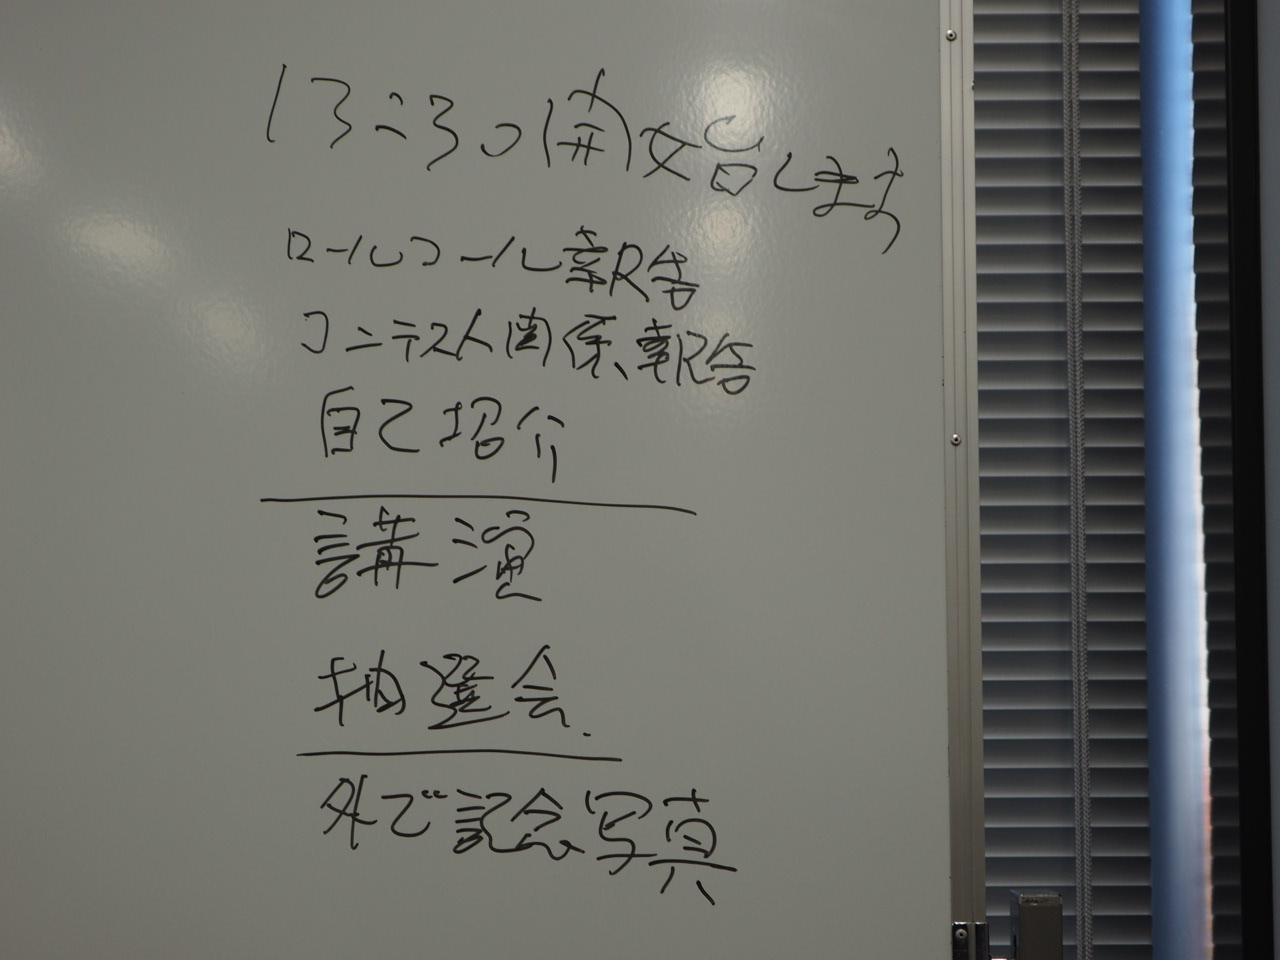 13:30開始します
ロールコール報告
コンテスト関係報告
自己紹介
講演
抽選会.
外で記念写真